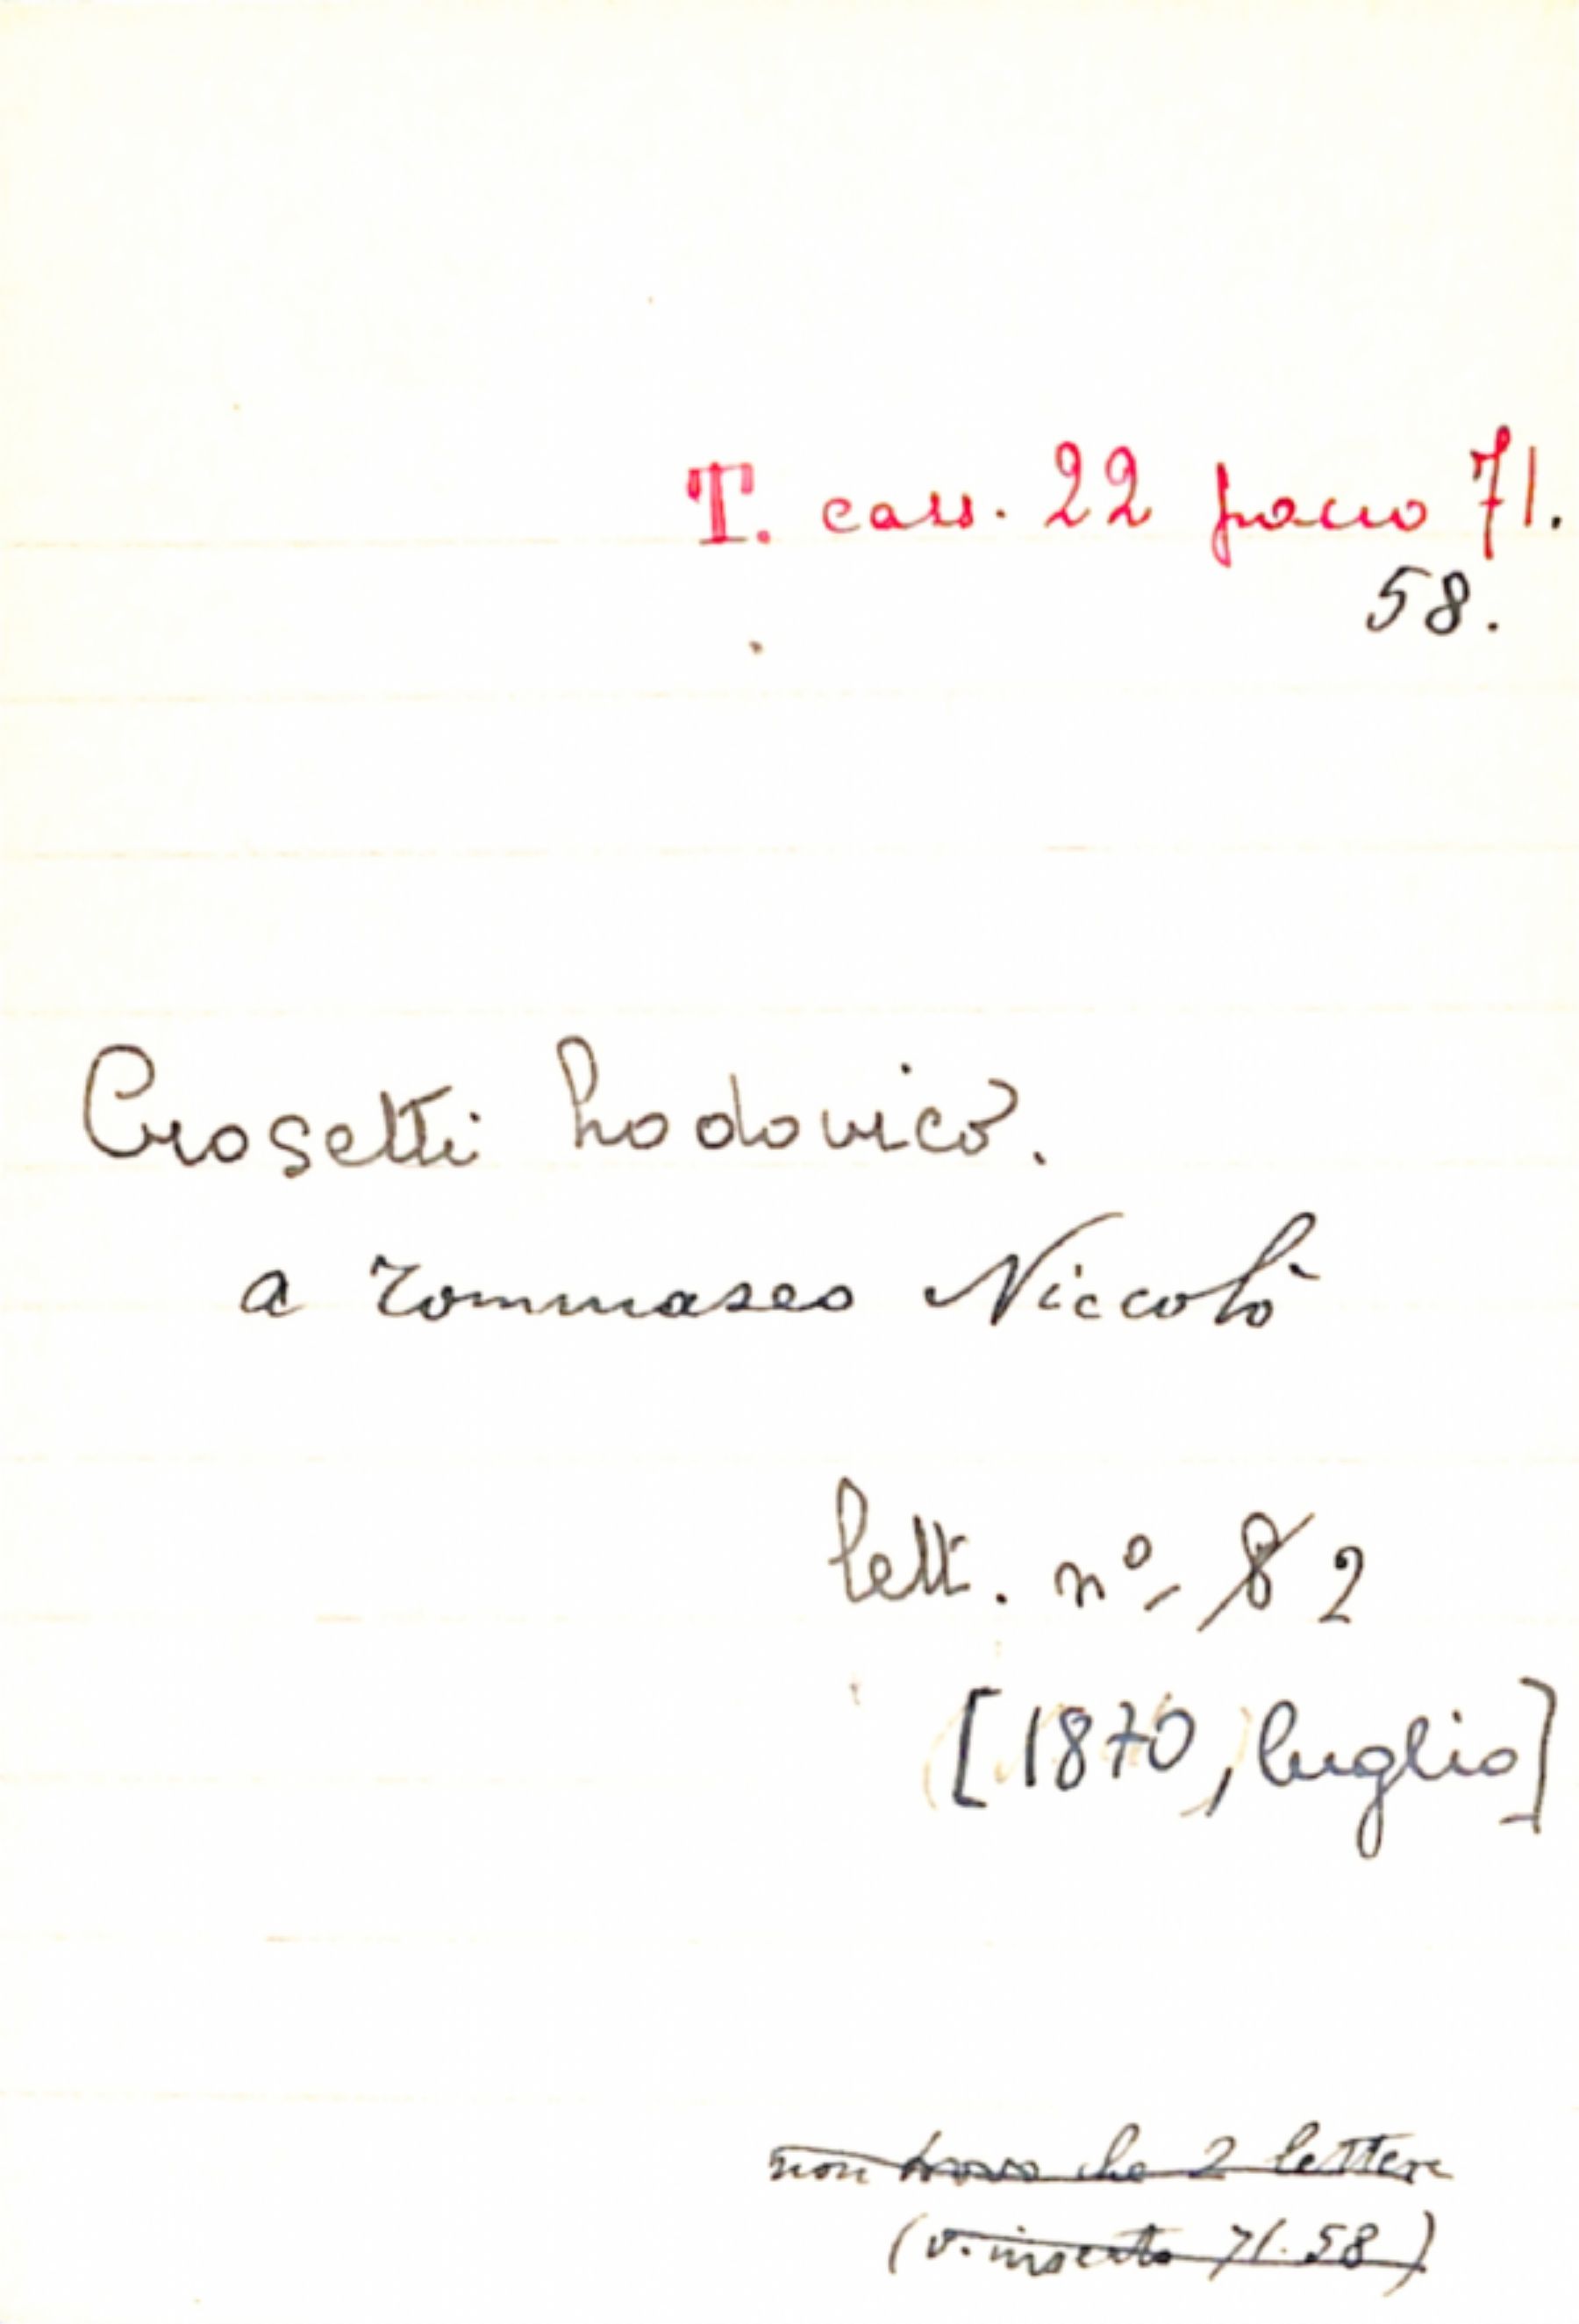 T. cass. 22 pacco 71.
58.
Crosetti Lodovico.
a Tommaseo Niccolò
lett. nº 8 2
[1870, luglio]
non trovo che 2 lettere
(v. inserto 71. 58)